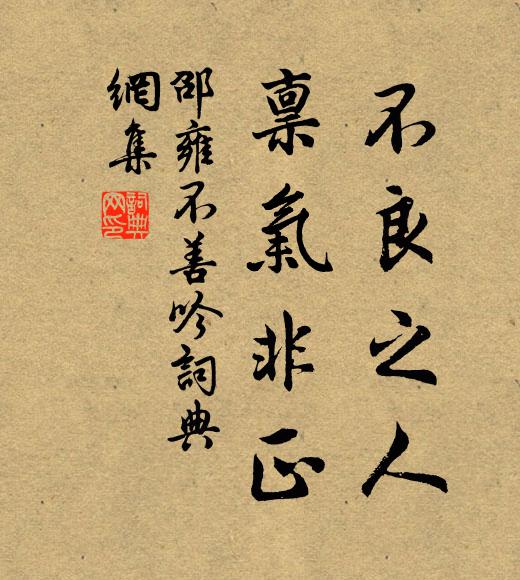 不良之人
稟氣非正
邵雍不善吟詞典
網集
詞典
网印